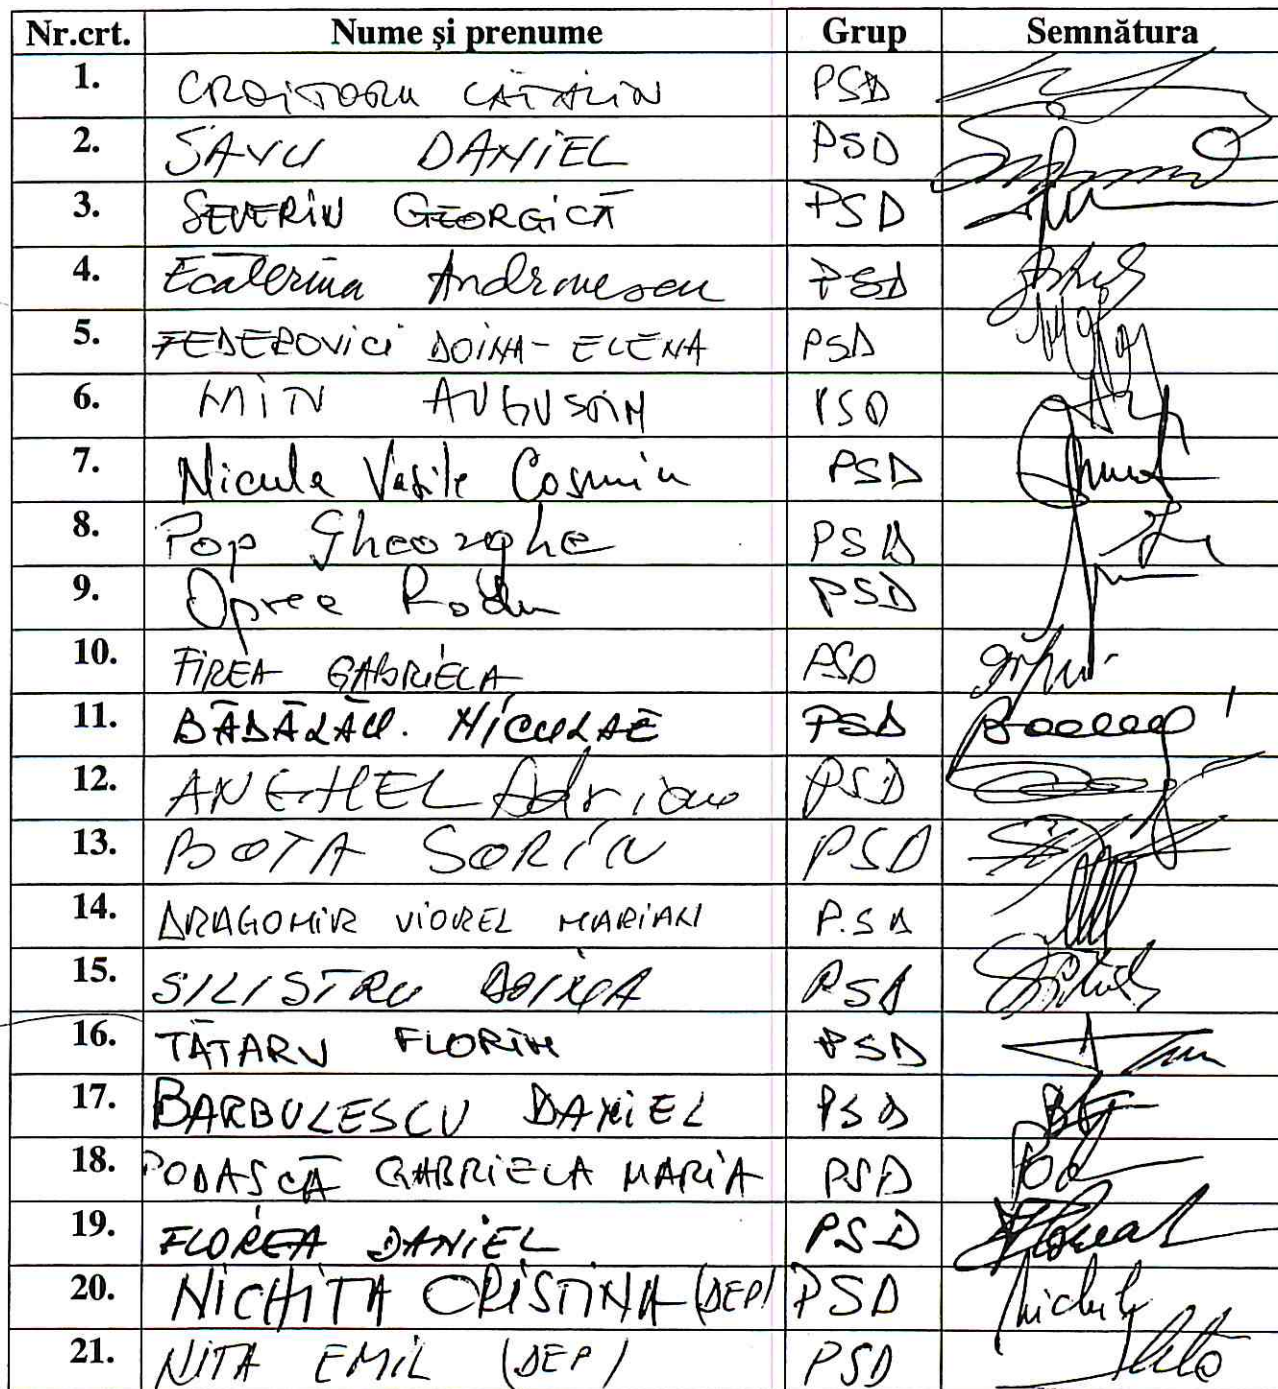 Nr.crt. Nume și prenume Grup Semnătura
1. CROITORU CĂTĂLIN PSD
2. SAVU DANIEL PSD
3. SEVERIN GEORGICĂ PSD
4. Ecaterina Andronescu PSD
5. FEDEROVICI DOINA-ELENA PSD
6. MITU AUGUSTIN PSD
7. Nicula Vasile Cosmin PSD
8. Pop Gheorghe PSD
9. Oprea Radu PSD
10. FIREA GABRIELA PSD
11. BĂDĂLĂU. NICULAE PSD
12. ANGHEL Adrian PSD
13. BOTA SORIN PSD
14. DRAGOMIR VIOREL MARIAN P.SD
15. SILISTRU DOINA PSD
16. TĂTARU FLORIN PSD
17. BARBULESCU DANIEL PSD
18. PODAȘCĂ GABRIELA MARIA PSD
19. FLOREA DANIEL PSD
20. NICHITA CRISTINA (DEP) PSD
21. NITA EMIL (DEP) PSD